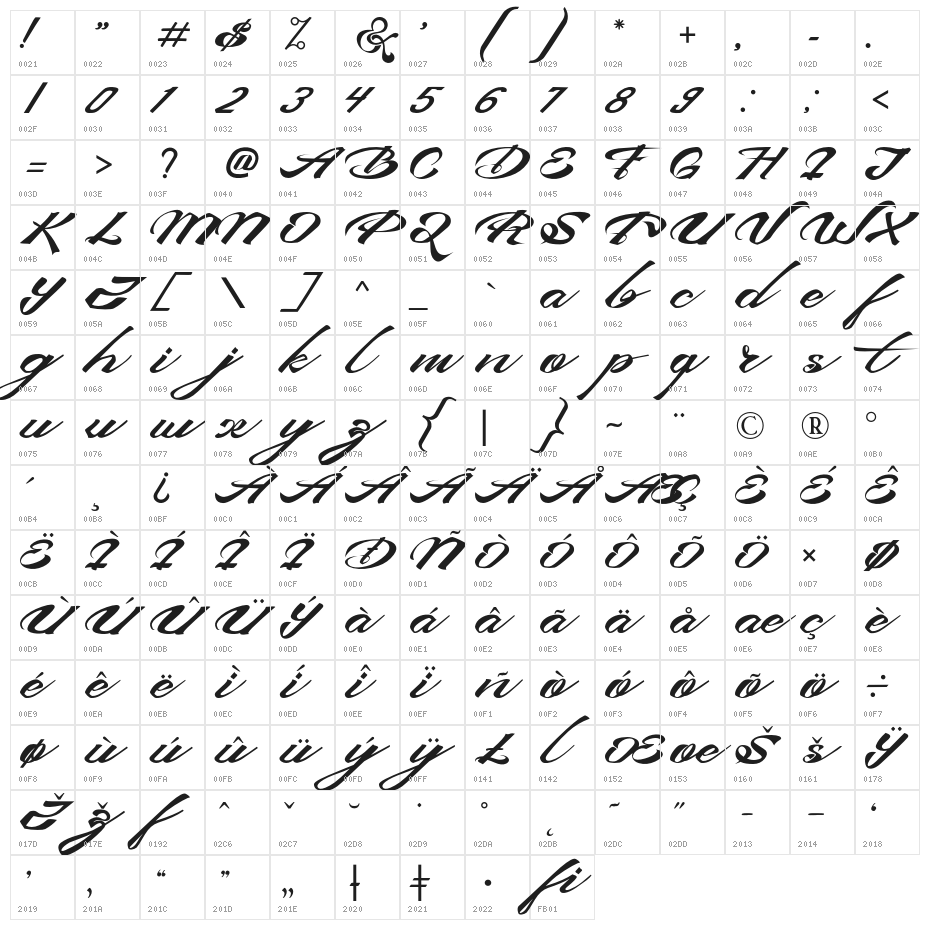 ! " # $ % & ' ( ) * + , - .
0021 0022 0023 0024 0025 0026 0027 0028 0029 002A 002B 002C 002D 002E
/ 0 1 2 3 4 5 6 7 8 9 : ; <
002F 0030 0031 0032 0033 0034 0035 0036 0037 0038 0039 003A 003B 003C
= > ? @ A B C D E F G H I J
003D 003E 003F 0040 0041 0042 0043 0044 0045 0046 0047 0048 0049 004A
K L M N O P Q R S T U V W X
004B 004C 004D 004E 004F 0050 0051 0052 0053 0054 0055 0056 0057 0058
Y Z [ \ ] ^ _ ` a b c d e f
0059 005A 005B 005C 005D 005E 005F 0060 0061 0062 0063 0064 0065 0066
g h i j k l m n o p q r s t
0067 0068 0069 006A 006B 006C 006D 006E 006F 0070 0071 0072 0073 0074
u v w x y z { | } ~ ¨ © ® °
0075 0076 0077 0078 0079 007A 007B 007C 007D 007E 00A8 00A9 00AE 00B0
´ ¸ ¿ À Á Â Ã Ä Å Æ Ç È É Ê
00B4 00B8 00BF 00C0 00C1 00C2 00C3 00C4 00C5 00C6 00C7 00C8 00C9 00CA
Ë Ì Í Î Ï Ð Ñ Ò Ó Ô Õ Ö × Ø
00CB 00CC 00CD 00CE 00CF 00D0 00D1 00D2 00D3 00D4 00D5 00D6 00D7 00D8
Ù Ú Û Ü Ý à á â ã ä å æ ç è
00D9 00DA 00DB 00DC 00DD 00E0 00E1 00E2 00E3 00E4 00E5 00E6 00E7 00E8
é ê ë ì í î ï ñ ò ó ô õ ö ÷
00E9 00EA 00EB 00EC 00ED 00EE 00EF 00F1 00F2 00F3 00F4 00F5 00F6 00F7
ø ù ú û ü ý ÿ Ł ł Œ œ Š š Ÿ
00F8 00F9 00FA 00FB 00FC 00FD 00FF 0141 0142 0152 0153 0160 0161 0178
Ž ž ƒ ˆ ˇ ˘ ˙ ˚ ˛ ˜ ˝ – — ‘
017D 017E 0192 02C6 02C7 02D8 02D9 02DA 02DB 02DC 02DD 2013 2014 2018
’ ‚ “ ” „ † ‡ • ﬁ
2019 201A 201C 201D 201E 2020 2021 2022 FB01